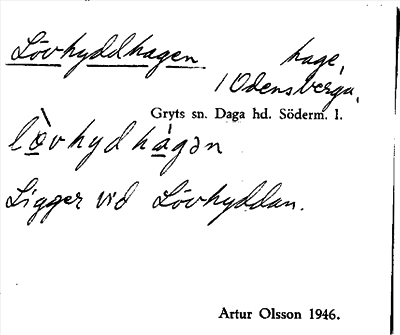 Lövhyddhagen hage,
1 Odensberga,
Gryts sn. Daga hd. Söderm. l.
lòvhydhágən
Ligger vid Lövhyddan.
Artur Olsson 1946.